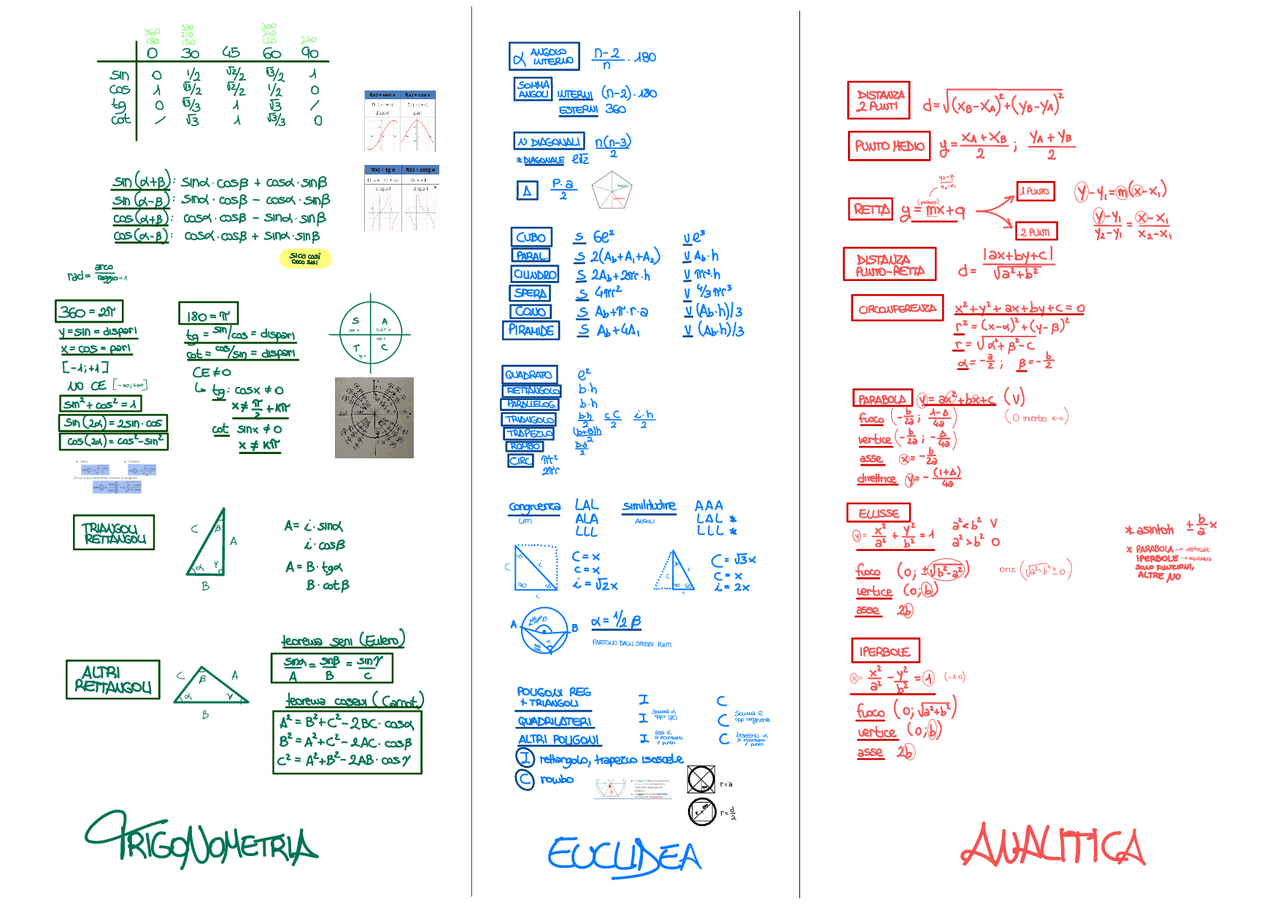 360 330 300
180 210 240
150 120 270
0 30 45 60 90
sin 0 1/2 √2/2 √3/2 1
cos 1 √3/2 √2/2 1/2 0
tg 0 √3/3 1 √3 /
cot / √3 1 √3/3 0
f(x) = sen x f(x) = cos x
dispari pari
f(x) = tg x f(x) = cotg x
dispari dispari
sin(α+β): sinα·cosβ + cosα·sinβ
sin(α-β): sinα·cosβ - cosα·sinβ
cos(α+β): cosα·cosβ - sinα·sinβ
cos(α-β): cosα·cosβ + sinα·sinβ
SICO COSI
COCO SISI
rad = arco/raggio=1
360 = 2π
y = sin = dispari
x = cos = pari
[-1;+1]
NO CE [-∞;+∞]
sin² + cos² = 1
sin(2α) = 2sin·cos
cos(2α) = cos² - sin²
180 = π
tg = sin/cos = dispari
cot = cos/sin = dispari
CE ≠ 0
↳ tg: cosx ≠ 0
x ≠ π/2 + kπ
cot sinx ≠ 0
x ≠ kπ
S A
T C
TRIANGOLI
RETTANGOLI
C β A
α γ
B
A = i·sinα
i·cosβ
A = B·tgα
B·cotβ
ALTRI
RETTANGOLI
C β A
α γ
B
teorema seni (Eulero)
sinα/A = sinβ/B = sinγ/C
teorema coseni (Carnot)
A² = B² + C² - 2BC·cosα
B² = A² + C² - 2AC·cosβ
C² = A² + B² - 2AB·cosγ
TRIGONOMETRIA
α ANGOLO INTERNO n-2/n · 180
SOMMA ANGOLI INTERNI (n-2)·180
ESTERNI 360
N DIAGONALI n(n-3)/2
* DIAGONALE ℓ√2
A P·a/2
CUBO S 6e² V e³
PARAL. S 2(Ab+A1+A2) V Ab·h
CILINDRO S 2Ab+2πr·h V πr²·h
SFERA S 4πr² V 4/3πr³
CONO S Ab+π·r·a V (Ab·h)/3
PIRAMIDE S Ab+4A1 V (Ab·h)/3
QUADRATO e²
RETTANGOLO b·h
PARALLELOG b·h
TRIANGOLO b·h/2 c·C/2 i·h/2
TRAPEZIO (b+B)h/2
ROMBO D·d/2
CIRC πr²
2πr
congruenza LAL similitudine AAA
LATI ALA ANGOLI LAL *
LLL LLL *
C = x
c = x
i = √2x
C = √3x
c = x
i = 2x
A B
α = 1/2 β
PARTONO DAGLI STESSI PUNTI
POLIGONI REG
+ TRIANGOLI I C
QUADRILATERI I somma α opp = 180 C somma ℓ opp congruente
ALTRI POLIGONI I assi si incontrano 1 punto C bisettrici si incontrano 1 punto
I rettangolo, trapezio isoscele
C rombo
r = a
r = d/2
EUCLIDEA
DISTANZA
2 PUNTI d = √(xB-xA)²+(yB-yA)²
PUNTO MEDIO y = xA+xB/2 ; yA+yB/2
y2-y1/x2-x1
RETTA y = mx+q
1 PUNTO y-y1 = m(x-x1)
2 PUNTI y-y1/y2-y1 = x-x1/x2-x1
DISTANZA
PUNTO-RETTA d = |ax+by+c|/√a²+b²
CIRCONFERENZA x²+y²+ax+by+c=0
r² = (x-α)²+(y-β)²
r = √α²+β²-c
α = -a/2 ; β = -b/2
PARABOLA y = ax²+bx+c (V)
fuoco (-b/2a ; 1-Δ/4a) (O inverto ↔)
vertice (-b/2a ; -Δ/4a)
asse x = -b/2a
direttrice y = -(1+Δ)/4a
ELLISSE
y = x²/a² + y²/b² = 1 a²<b² V
a²>b² O
fuoco (0; ±√b²-a²) orizz (√a²-b²; 0)
vertice (0;b)
asse 2b
* asintoti ± b/a x
* PARABOLA → verticale
IPERBOLE → equilatera
SONO FUNZIONI,
ALTRE NO
IPERBOLE
x = x²/a² - y²/b² = 1 (-1 O)
fuoco (0; √a²+b²)
vertice (0;b)
asse 2b
ANALITICA